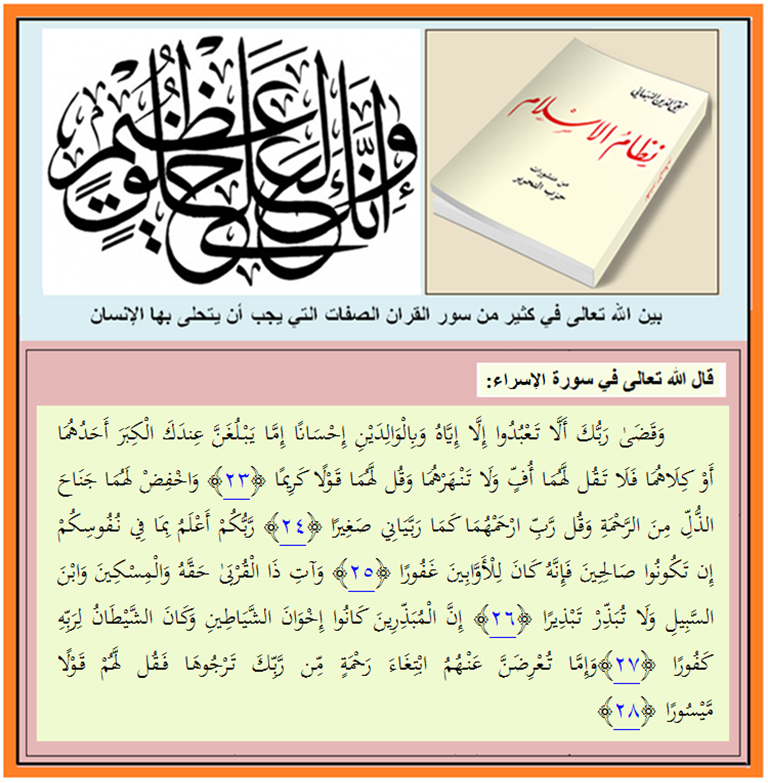 وَإِنَّكَ لَعَلَىٰ خُلُقٍ عَظِيمٍ
تقي الدين النبهاني
نظام الإسلام
من منشورات
حزب التحرير
بين الله تعالى في كثير من سور القران الصفات التي يجب أن يتحلى بها الإنسان
قال الله تعالى في سورة الإسراء:
وَقَضَىٰ رَبُّكَ أَلَّا تَعْبُدُوا إِلَّا إِيَّاهُ وَبِالْوَالِدَيْنِ إِحْسَانًا إِمَّا يَبْلُغَنَّ عِندَكَ الْكِبَرَ أَحَدُهُمَا
أَوْ كِلَاهُمَا فَلَا تَقُل لَّهُمَا أُفٍّ وَلَا تَنْهَرْهُمَا وَقُل لَّهُمَا قَوْلًا كَرِيمًا ﴿٢٣﴾ وَاخْفِضْ لَهُمَا جَنَاحَ
الذُّلِّ مِنَ الرَّحْمَةِ وَقُل رَّبِّ ارْحَمْهُمَا كَمَا رَبَّيَانِي صَغِيرًا ﴿٢٤﴾ رَّبُّكُمْ أَعْلَمُ بِمَا فِي نُفُوسِكُمْ
إِن تَكُونُوا صَالِحِينَ فَإِنَّهُ كَانَ لِلْأَوَّابِينَ غَفُورًا ﴿٢٥﴾ وَآتِ ذَا الْقُرْبَىٰ حَقَّهُ وَالْمِسْكِينَ وَابْنَ
السَّبِيلِ وَلَا تُبَذِّرْ تَبْذِيرًا ﴿٢٦﴾ إِنَّ الْمُبَذِّرِينَ كَانُوا إِخْوَانَ الشَّيَاطِينِ وَكَانَ الشَّيْطَانُ لِرَبِّهِ
كَفُورًا ﴿٢٧﴾وَإِمَّا تُعْرِضَنَّ عَنْهُمُ ابْتِغَاءَ رَحْمَةٍ مِّن رَّبِّكَ تَرْجُوهَا فَقُل لَّهُمْ قَوْلًا
مَّيْسُورًا ﴿٢٨﴾